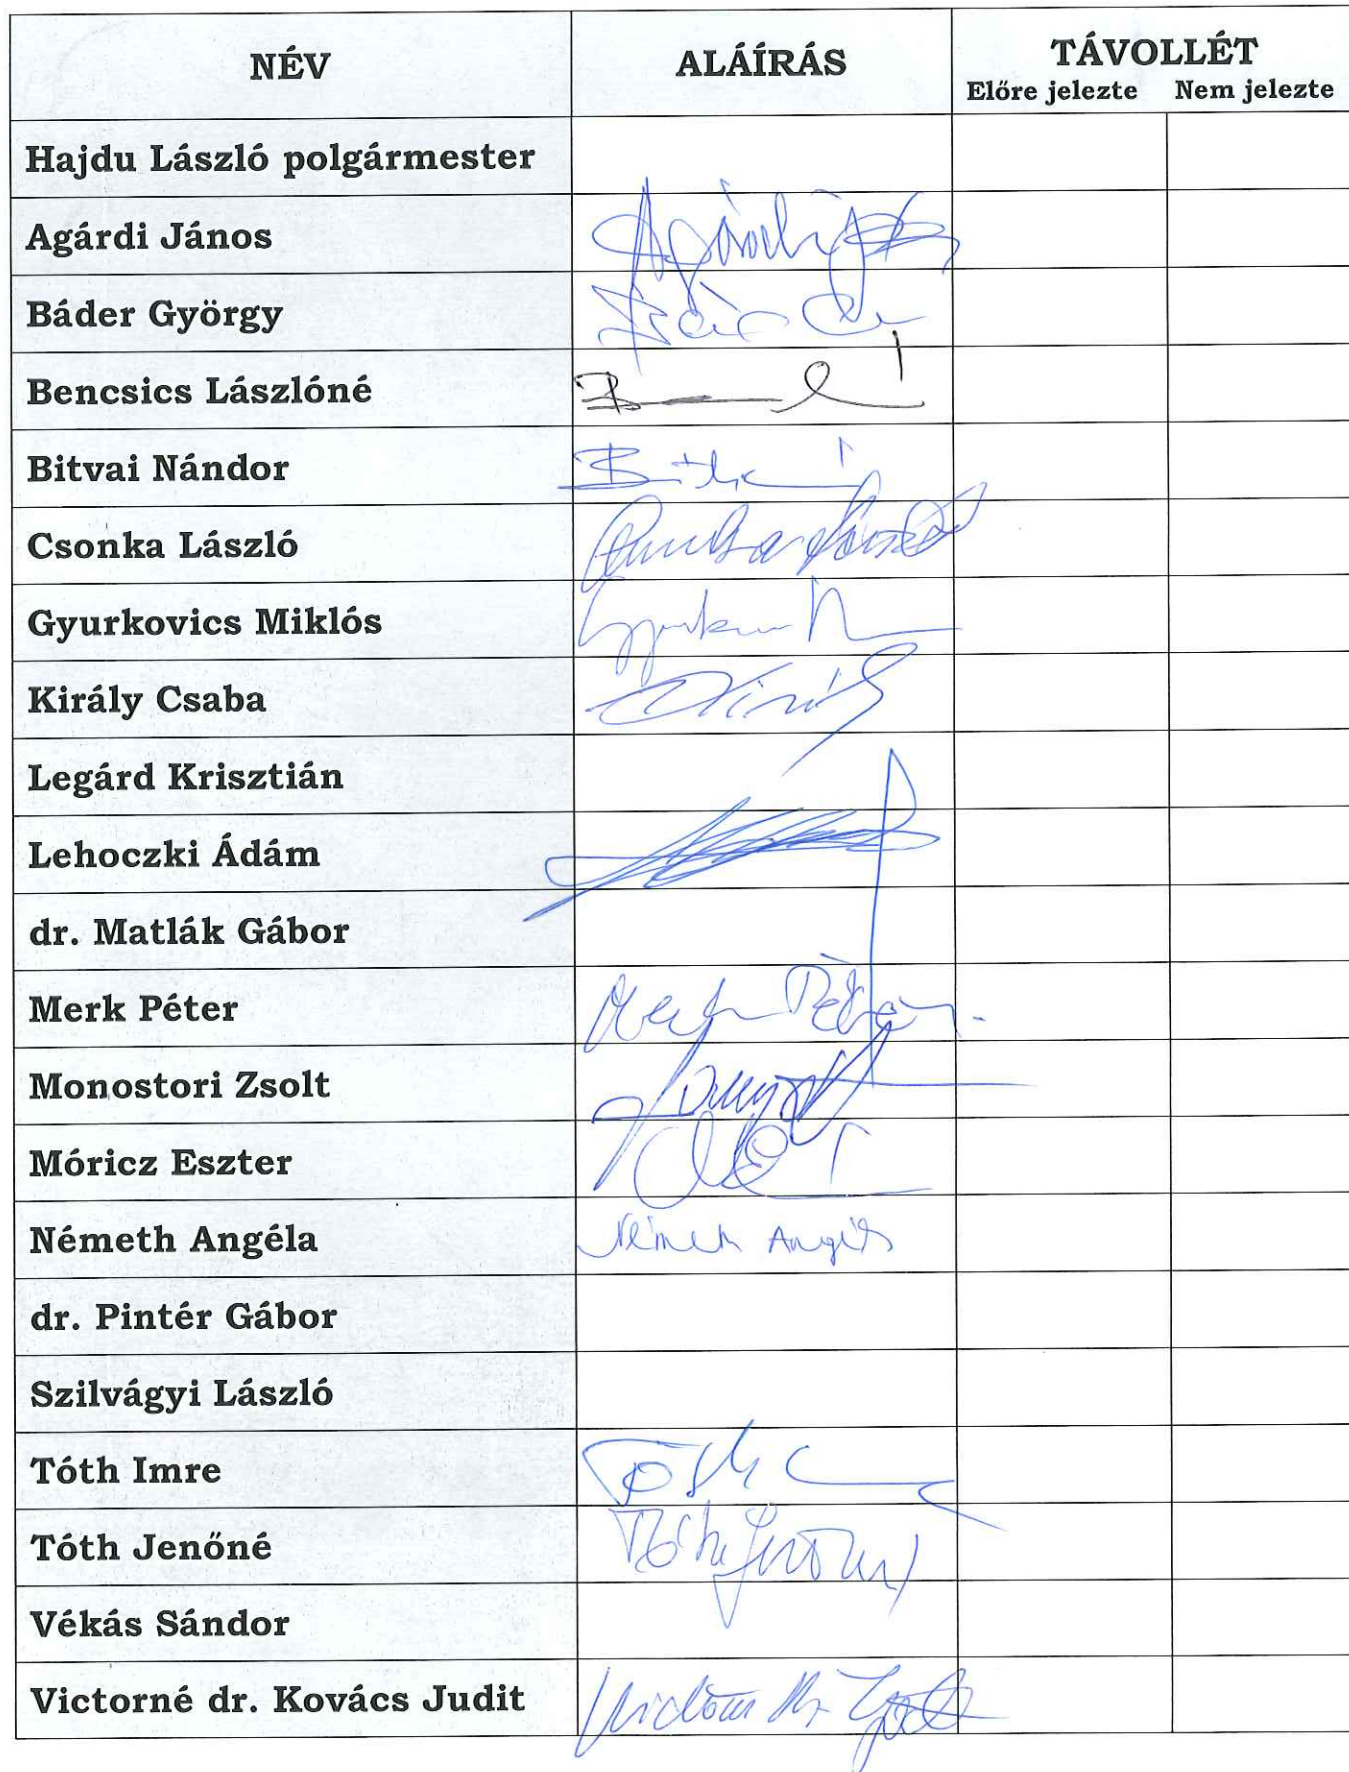 NÉV ALÁÍRÁS TÁVOLLÉT
Előre jelezte Nem jelezte
Hajdu László polgármester
Agárdi János
Báder György
Bencsics Lászlóné
Bitvai Nándor
Csonka László
Gyurkovics Miklós
Király Csaba
Legárd Krisztián
Lehoczki Ádám
dr. Matlák Gábor
Merk Péter Merk Péter
Monostori Zsolt
Móricz Eszter
Németh Angéla Németh Angéla
dr. Pintér Gábor
Szilvágyi László
Tóth Imre
Tóth Jenőné Tóth Jenőné
Vékás Sándor
Victorné dr. Kovács Judit